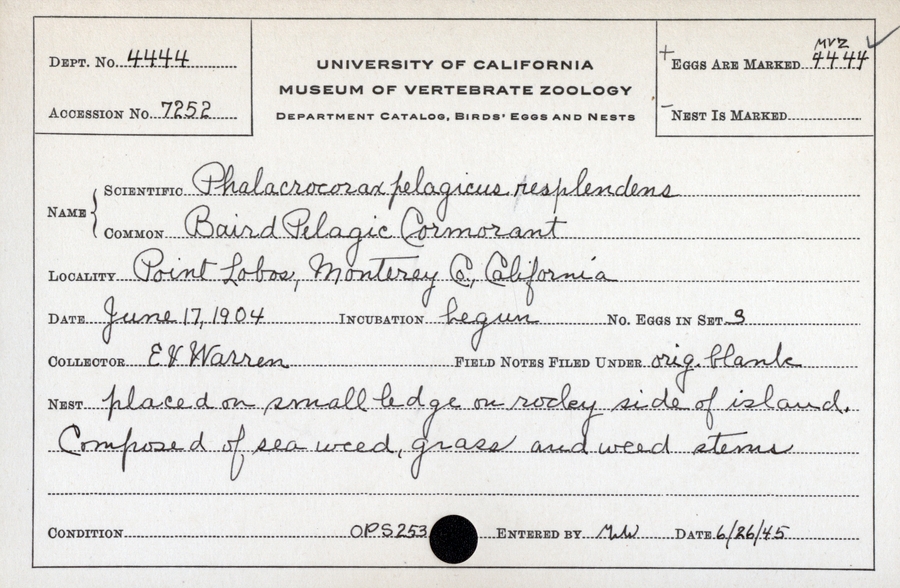 DEPT. NO. 4444
ACCESSION NO. 7252
UNIVERSITY OF CALIFORNIA
MUSEUM OF VERTEBRATE ZOOLOGY
DEPARTMENT CATALOG, BIRDS' EGGS AND NESTS
MVZ
+ EGGS ARE MARKED 4444 ✓
- NEST IS MARKED
NAME
SCIENTIFIC Phalacrocorax pelagicus resplendens
COMMON Baird Pelagic Cormorant
LOCALITY Point Lobos, Monterey C., California
DATE June 17, 1904 INCUBATION begun NO. EGGS IN SET 3
COLLECTOR E V Warren FIELD NOTES FILED UNDER orig. blank
NEST placed on small ledge on rocky side of island.
Composed of sea weed, grass and weed stems
CONDITION OPS253 ENTERED BY MW DATE 6/26/45